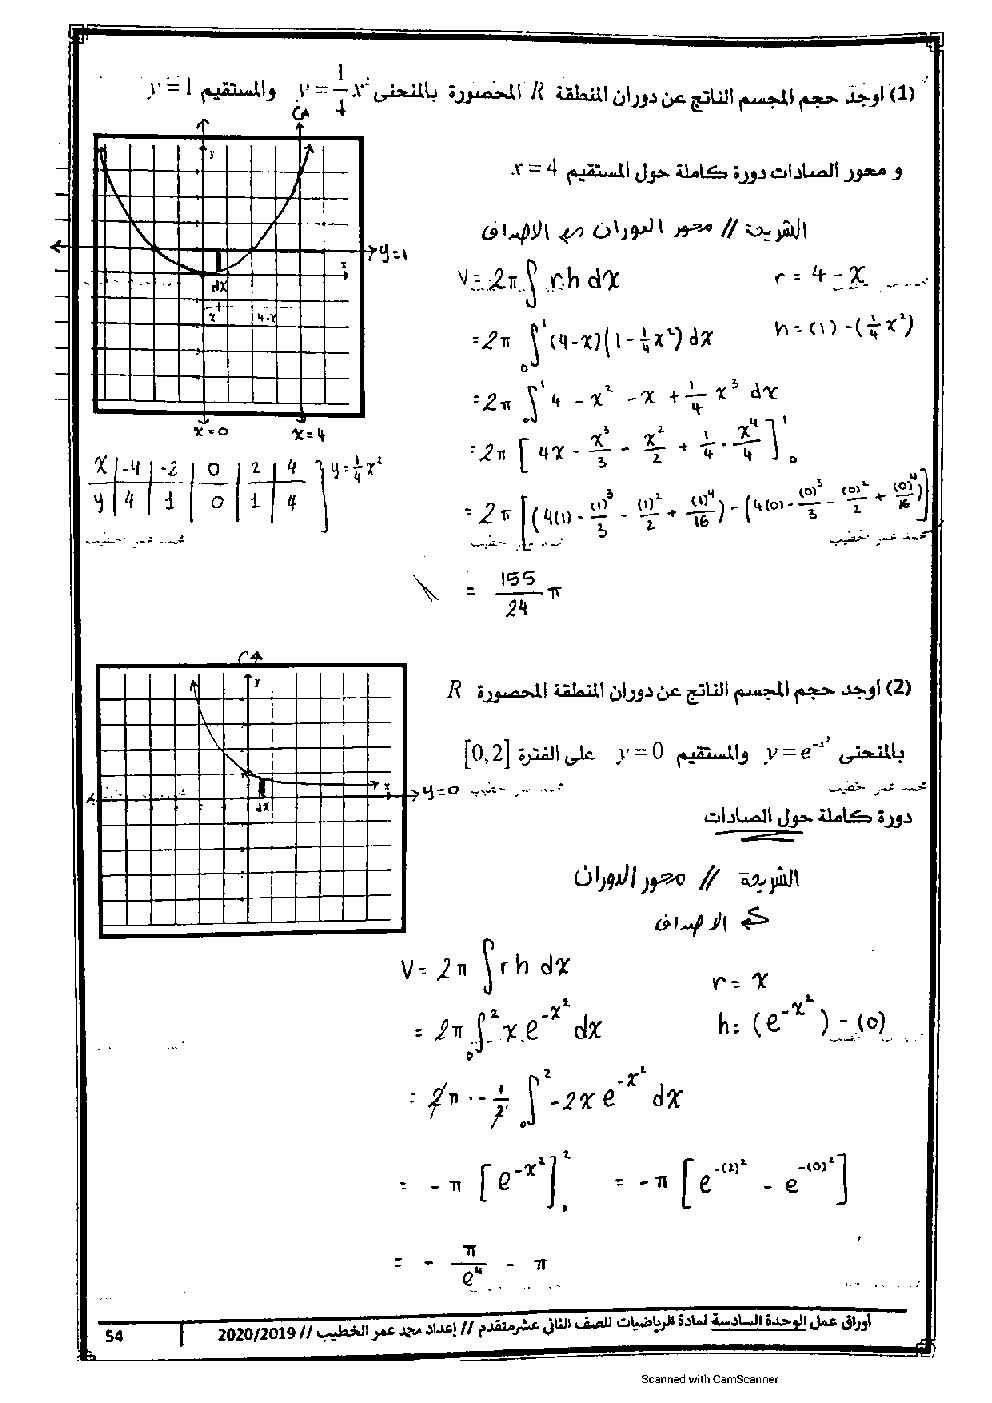 (1) اوجد حجم المجسم الناتج عن دوران المنطقة R المحصورة بالمنحنى y = 1/4 x² والمستقيم y = 1
و محور الصادات دورة كاملة حول المستقيم x = 4
الشريحة // محور الدوران ⇒ الاصداف
V = 2π ∫ r h dx
r = 4 - x
= 2π ∫₀¹ (4-x)(1 - 1/4 x²) dx
h = (1) - (1/4 x²)
= 2π ∫₀¹ 4 - x² - x + 1/4 x³ dx
= 2π [ 4x - x³/3 - x²/2 + 1/4 · x⁴/4 ]₀¹
= 2π [ (4(1) - (1)³/3 - (1)²/2 + (1)⁴/16) - (4(0) - (0)³/3 - (0)²/2 + (0)⁴/16) ]
= 155/24 π
y
y=1
x
dx
x
4-x
x=0
x=4
x | -4 | -2 | 0 | 2 | 4
y | 4 | 1 | 0 | 1 | 4
y = 1/4 x²
محمد عمر الخطيب
محمد عمر الخطيب
(2) أوجد حجم المجسم الناتج عن دوران المنطقة المحصورة R
بالمنحنى y = e^(-x²) والمستقيم y = 0 على الفترة [0,2]
دورة كاملة حول الصادات
y
x
dx
y=0
محمد عمر الخطيب
الشريحة // محور الدوران
⇐ الاصداف
V = 2π ∫ r h dx
r = x
= 2π ∫₀² x e^(-x²) dx
h = (e^(-x²)) - (0)
= 2π · -1/2 ∫₀² -2x e^(-x²) dx
= -π [ e^(-x²) ]₀² = -π [ e^(-(2)²) - e^(-(0)²) ]
= - π/e⁴ - π
أوراق عمل الوحدة السادسة لمادة الرياضيات للصف الثاني عشر متقدم // إعداد محمد عمر الخطيب // 2020/2019
54
Scanned with CamScanner